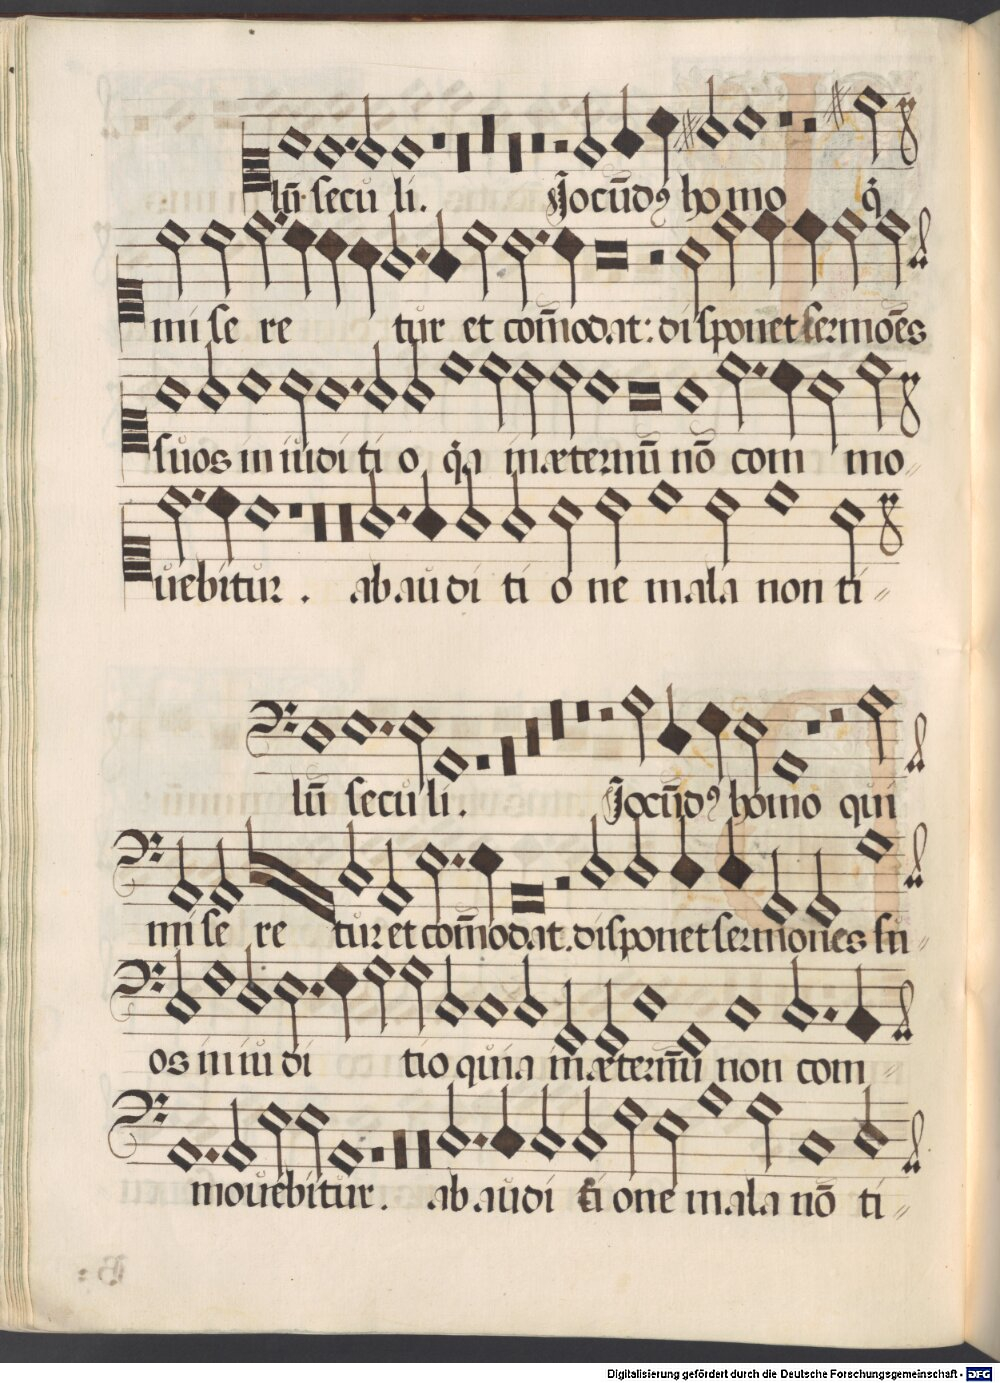 lū secu li. Jocūdꝰ homo q̇
mi se re tur et com̄odat: disponet sermōes
suos in iudi ti o q̇a in æternū nō com mo-
uebitur . ab au di ti o ne mala non ti
lū secu li. Jocūdꝰ homo qui
mi se re tur et com̄odat. disponet sermones su
os in iu di tio quia in æternū non com
mouebitur. ab audi ti one mala nō ti
Digitalisierung gefördert durch die Deutsche Forschungsgemeinschaft - DFG